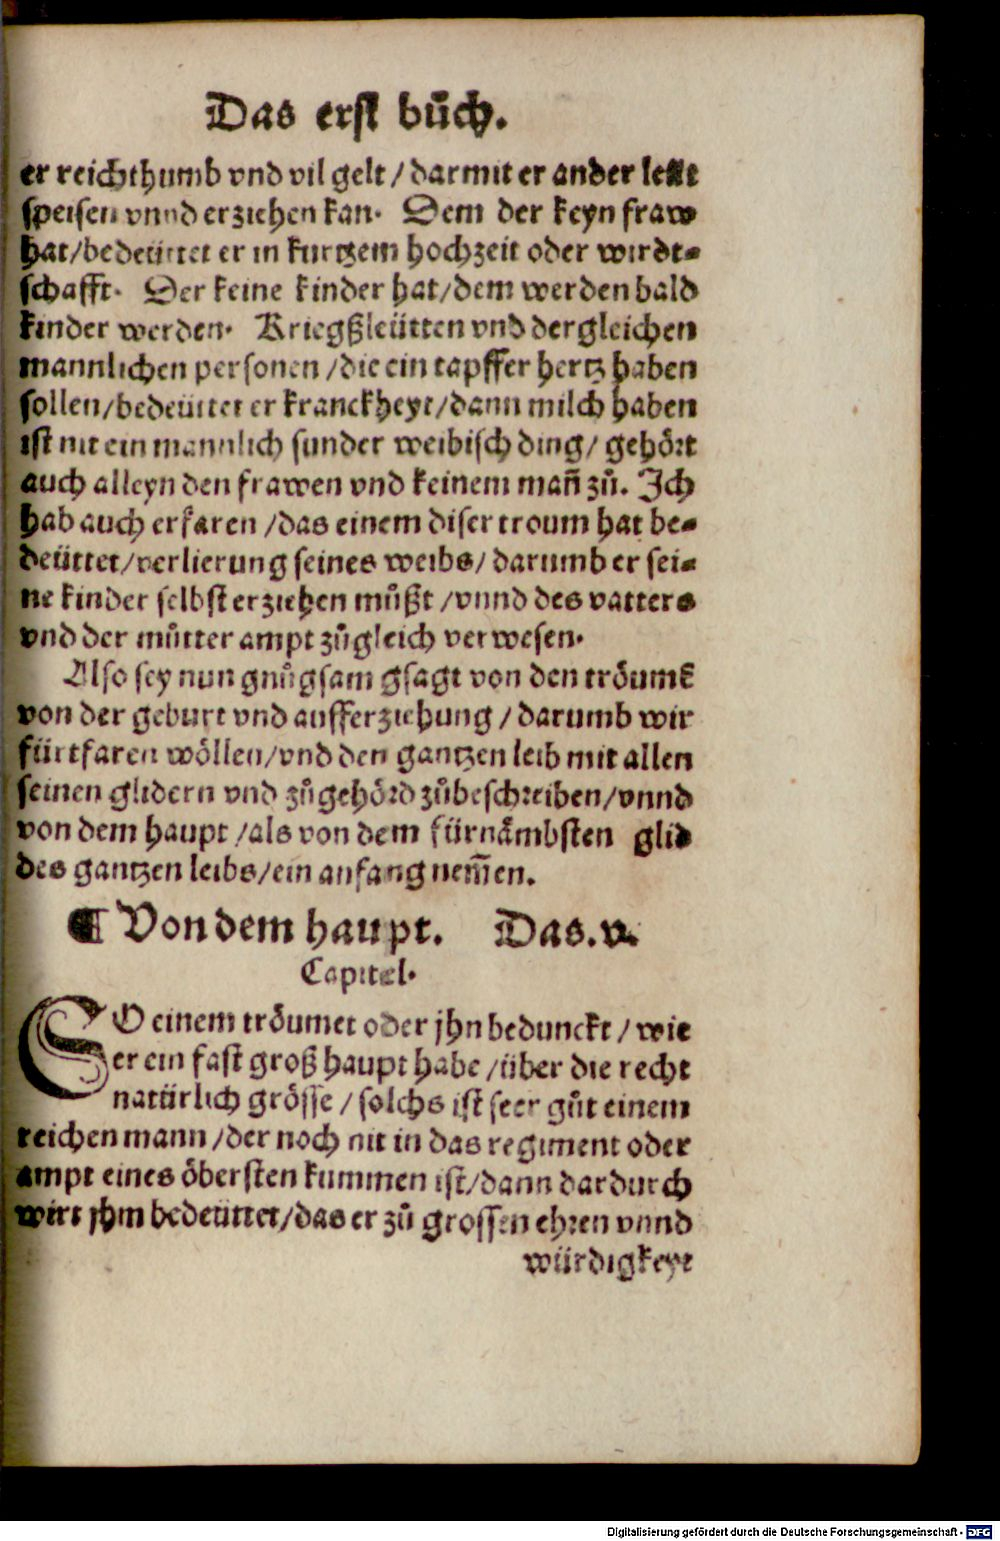 Das erst bůch.
er reichthumb vnd vil gelt / darmit er ander leüt
speisen vnnd erziehen kan. Dem der keyn fraw
hat/bedeüttet er in kurtzem hochzeit oder wirdt-
schafft. Der keine kinder hat/dem werden bald
kinder werden. Kriegßleütten vnd dergleichen
mannlichen personen /die ein tapffer hertz haben
sollen/bedeüttet er kranckheyt/dann milch haben
ist nit ein mannlich sunder weibisch ding/ gehört
auch alleyn den frawen vnd keinem mañ zů. Ich
hab auch erfaren /das einem diser troum hat be-
deüttet/verlierung seines weibs/ darumb er sei-
ne kinder selbst erziehen můßt /vnnd des vatters
vnd der můtter ampt zůgleich verwesen.
Also sey nun gnůgsam gsagt von den tröumẽ
von der geburt vnd aufferziehung / darumb wir
fürtfaren wöllen/vnd den gantzen leib mit allen
seinen glidern vnd zůgehörd zůbeschreiben/vnnd
von dem haupt /als von dem fürnämbsten glid
des gantzen leibs/ein anfang nem̃en.
¶ Von dem haupt. Das.v.
Capitel.
SO einem tröumet oder jhn bedunckt / wie
er ein fast groß haupt habe /über die recht
natürlich grösse / solchs ist seer gůt einem
reichen mann /der noch nit in das regiment oder
ampt eines öbersten kummen ist/dann dardurch
wirt jhm bedeüttet/das er zů grossen ehren vnnd
würdigkeyt
Digitalisierung gefördert durch die Deutsche Forschungsgemeinschaft - DFG